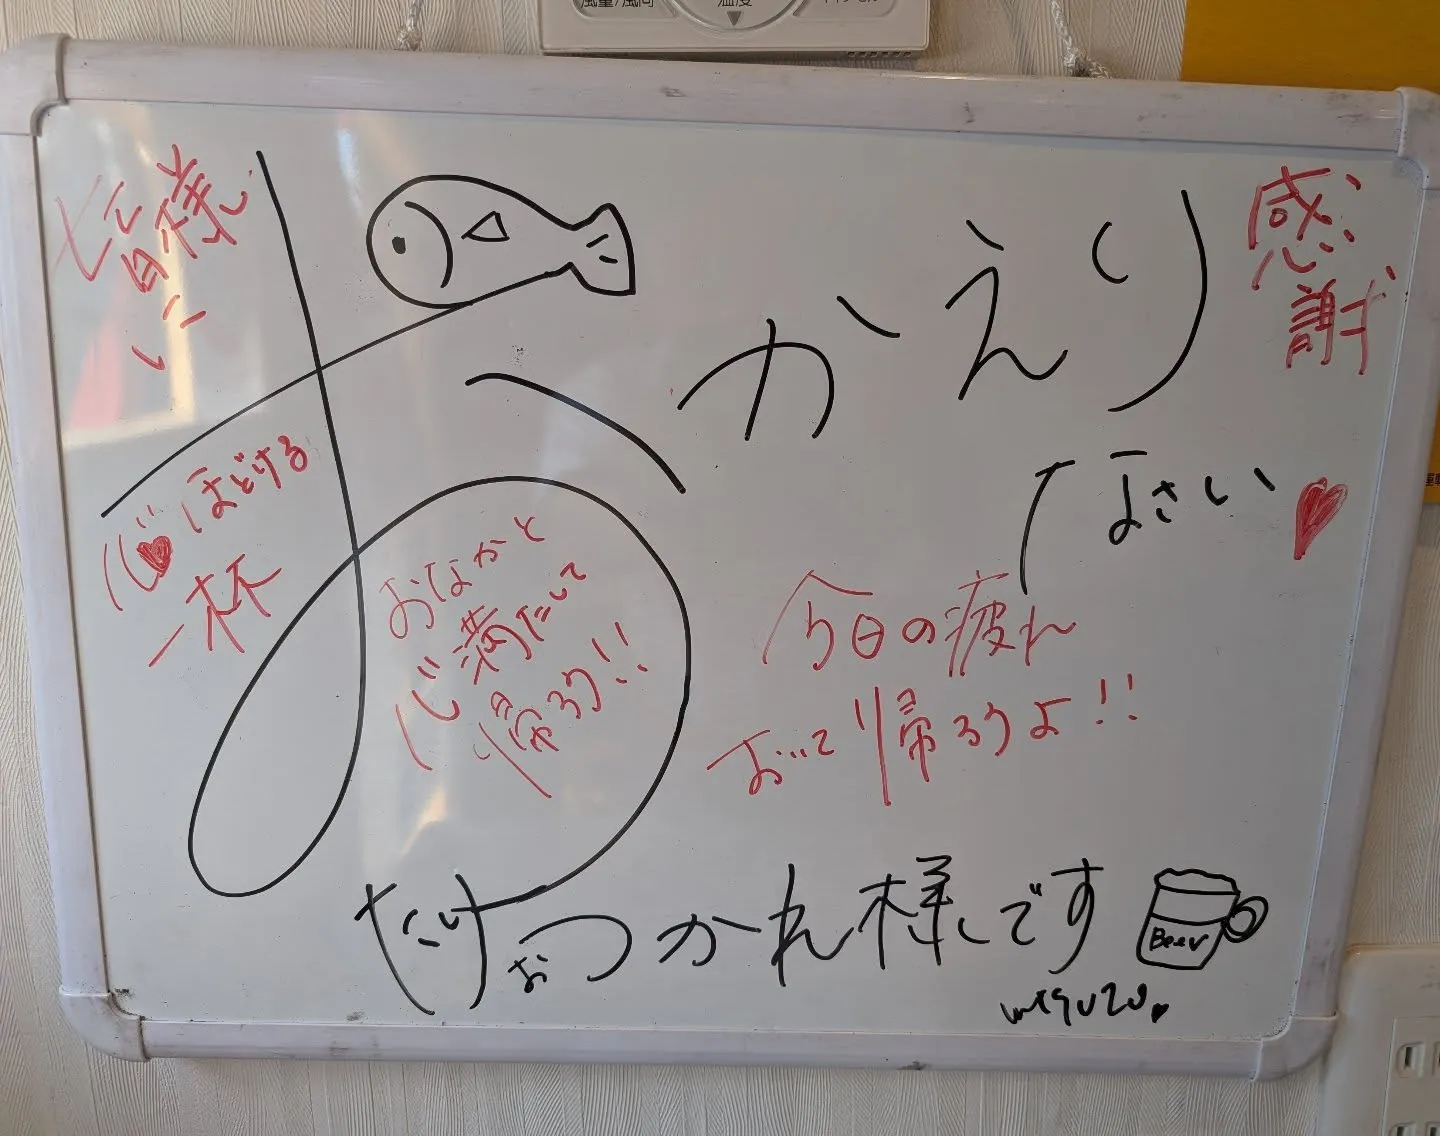 風量/風向
温度
皆様に
感謝
おかえり
なさい
心ほどける
一杯
おなかと
心満たして
帰ろう!!
今日の疲れ
おいて帰ろうよ!!
おつかれ様です
Beer